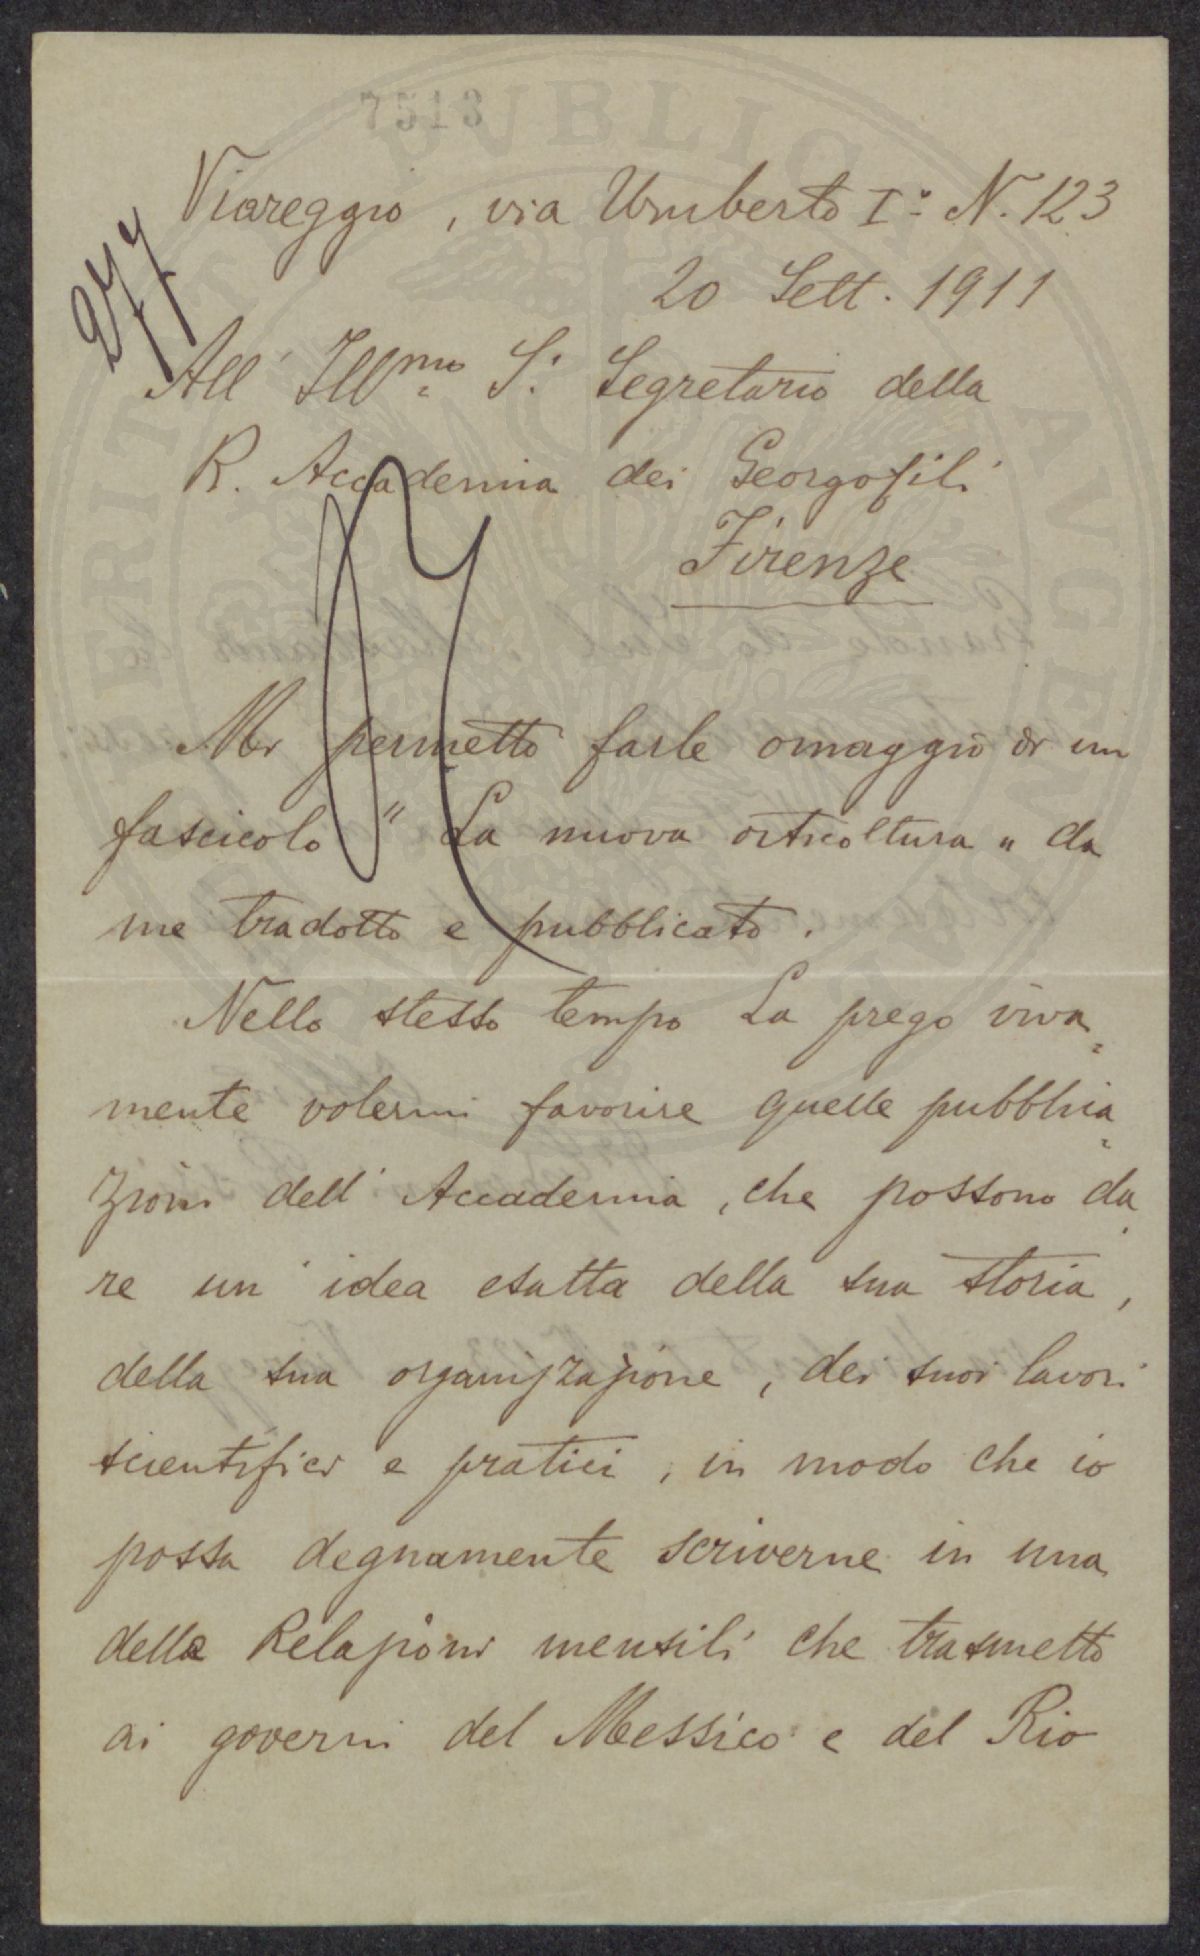 7513
277
Viareggio, via Umberto I° N. 123
20 Sett. 1911
All' Ill.mo S. Segretario della
R. Accademia dei Georgofili
Firenze
Mi permetto farle omaggio di un
fascicolo "La nuova orticoltura" da
me tradotto e pubblicato.
Nello stesso tempo La prego viva=
mente volermi favorire quelle pubblica=
zioni dell'Accademia, che possono da
re un'idea esatta della sua storia,
della sua organizzazione, dei suoi lavori
scientifici e pratici, in modo che io
possa degnamente scriverne in una
delle Relazioni mensili che trasmetto
ai governi del Messico e del Rio